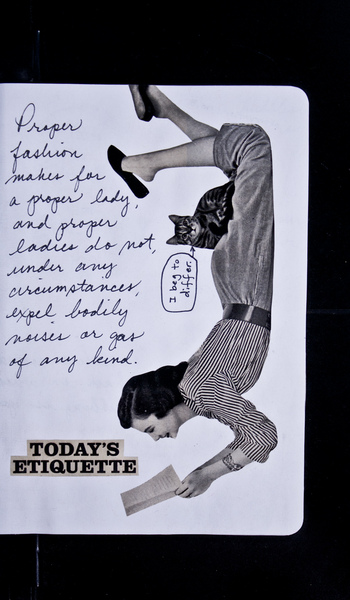 Proper
fashion
makes for
a proper lady,
and proper
ladies do not,
under any
circumstances,
expel bodily
noises or gas
of any kind.
I beg to
differ.
TODAY'S
ETIQUETTE